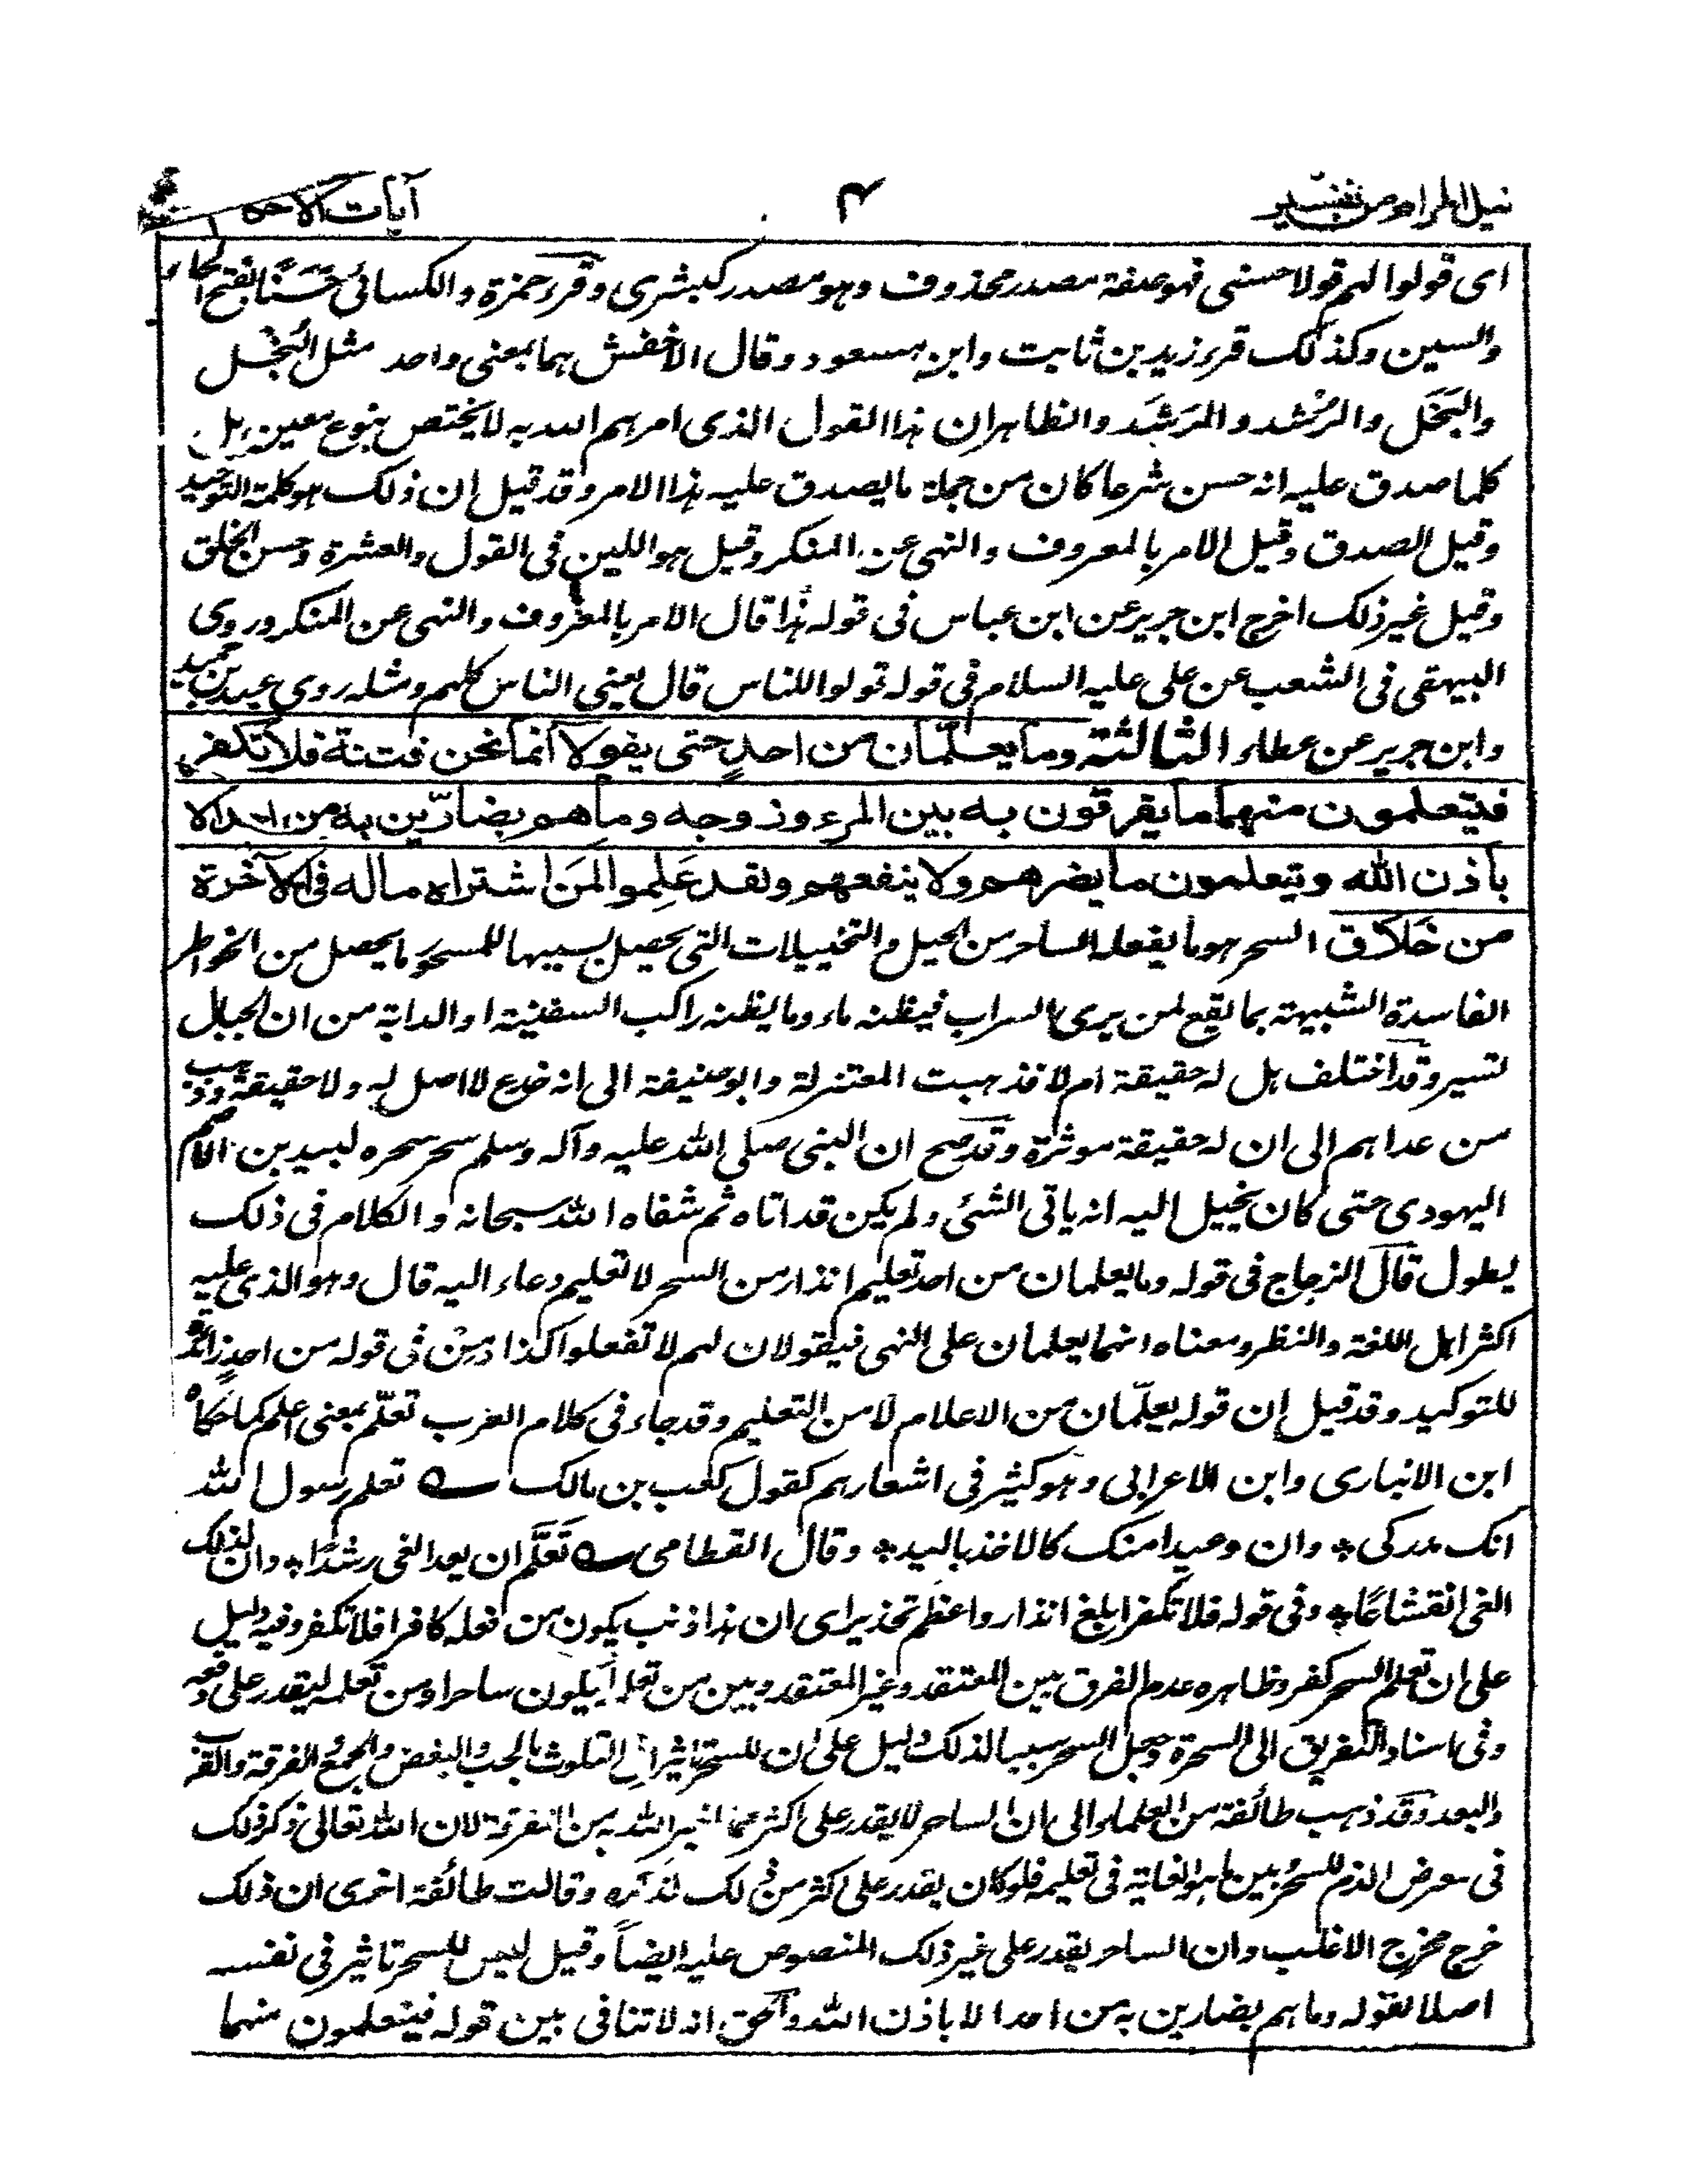 نيل المرام من تفسير
۴
آيات الاحكام
اى قولوا لهم قولا حسنى فهو صفة مصدر محذوف وهو مصدر كبشرى وقرء حمزة والكسائى حَسَنًا بفتح الحاء
والسين وكذلك قرء زيد بن ثابت وابن مسعود وقال الاخفش هما بمعنى واحد مثل البُخل
والبَخَل والرُشد والرَشَد والظاهر ان هذا القول الذى امرهم الله به لا يختص بنوع معين بل
كلما صدق عليه انه حسن شرعا كان من جملة ما يصدق عليه هذا الامر وقد قيل ان ذلك هو كلمة التوحيد
وقيل الصدق وقيل الامر بالمعروف والنهى عن المنكر وقيل هو اللين فى القول والعشرة وحسن الخلق
وقيل غير ذلك اخرج ابن جرير عن ابن عباس فى قوله هذا قال الامر بالمعروف والنهى عن المنكر وروى
البيهقى فى الشعب عن على عليه السلام فى قوله قولوا للناس قال يعنى الناس كلهم ومثله روى عبد بن حميد
وابن جرير عن عطاء الثالثة وما يعلّمان من احدٍ حتى يقولا انما نحن فتنة فلا تكفر
فيتعلمون منهما ما يفرقون به بين المرء وزوجه وما هم بضارّين به من احد الا
باذن الله ويتعلمون ما يضرهم ولا ينفعهم ولقد عَلِموا لمَن اشتراه ماله فى الآخرة
من خَلَاق السحر هو ما يفعله الساحر من الحيل والتخييلات التى يحصل بسببها للمسحور ما يحصل من الخواطر
الفاسدة الشبيهة بما يقع لمن يرى السراب فيظنه ماء وما يظنه راكب السفينة او الدابة من ان الجبال
تسير وقد اختلف هل له حقيقة ام لا فذهبت المعتزلة وابو حنيفة الى انه خدع لا اصل له ولا حقيقة وذهب
من عداهم الى ان له حقيقة موثرة وقد صح ان النبى صلى الله عليه وآله وسلم سحر سحره لبيد بن الاعصم
اليهودى حتى كان يخيل اليه انه ياتى الشئى ولم يكن قد اتاه ثم شفاه الله سبحانه والكلام فى ذلك
يطول قال الزجاج فى قوله وما يعلمان من احد تعليم انذار من السحر لا تعليم دعاء اليه قال وهو الذى عليه
اكثر اهل اللغة والنظر ومعناه انهما يعلمان على النهى فيقولان لهم لا تفعلوا كذا ومِن فى قوله من احدٍ زائدة
للتوكيد وقد قيل ان قوله يعلّمان من الاعلام لا من التعليم وقد جاء فى كلام العرب تعلّم بمعنى اعلم كما حكاه
ابن الانبارى وابن الاعرابى وهو كثير فى اشعارهم كقول كعب بن مالك ؎ تعلم رسول الله
انك مدركى * وان وعيدا منك كالاخذ باليد * وقال القطامى ؎ تَعَلَّم ان بعد الغى رشدًا * وان لذلك
الغى انقشاعًا * وفى قوله فلا تكفر ابلغ انذار واعظم تحذير اى ان هذا ذنب يكون من فعله كافرا فلا تكفر وفيه دليل
على ان تعلم السحر كفر وظاهره عدم الفرق بين المعتقد وغير المعتقد وبين من تعلمه ليكون ساحرا ومن تعلمه ليقدر على دفعه
وفى اسناد التفريق الى السحرة وجعل السحر سببا لذلك دليل على ان للسحر تاثيرا فى القلوب بالحب والبغض والجمع والفرقة والقرب
والبعد وقد ذهب طائفة من العلماء الى ان الساحر لا يقدر على اكثر مما اخبر الله به من التفرقة لان الله تعالى ذكر ذلك
فى معرض الذم للسحر وبين ما هو الغاية فى تعليمه فلو كان يقدر على اكثر من ذلك لذكره وقالت طائفة اخرى ان ذلك
خرج مخرج الاغلب وان الساحر يقدر على غير ذلك المنصوص عليه ايضاً وقيل ليس للسحر تاثير فى نفسه
اصلا لقوله وما هم بضارين به من احد الا باذن الله والحق انه لا تنافى بين قوله فيتعلمون منهما